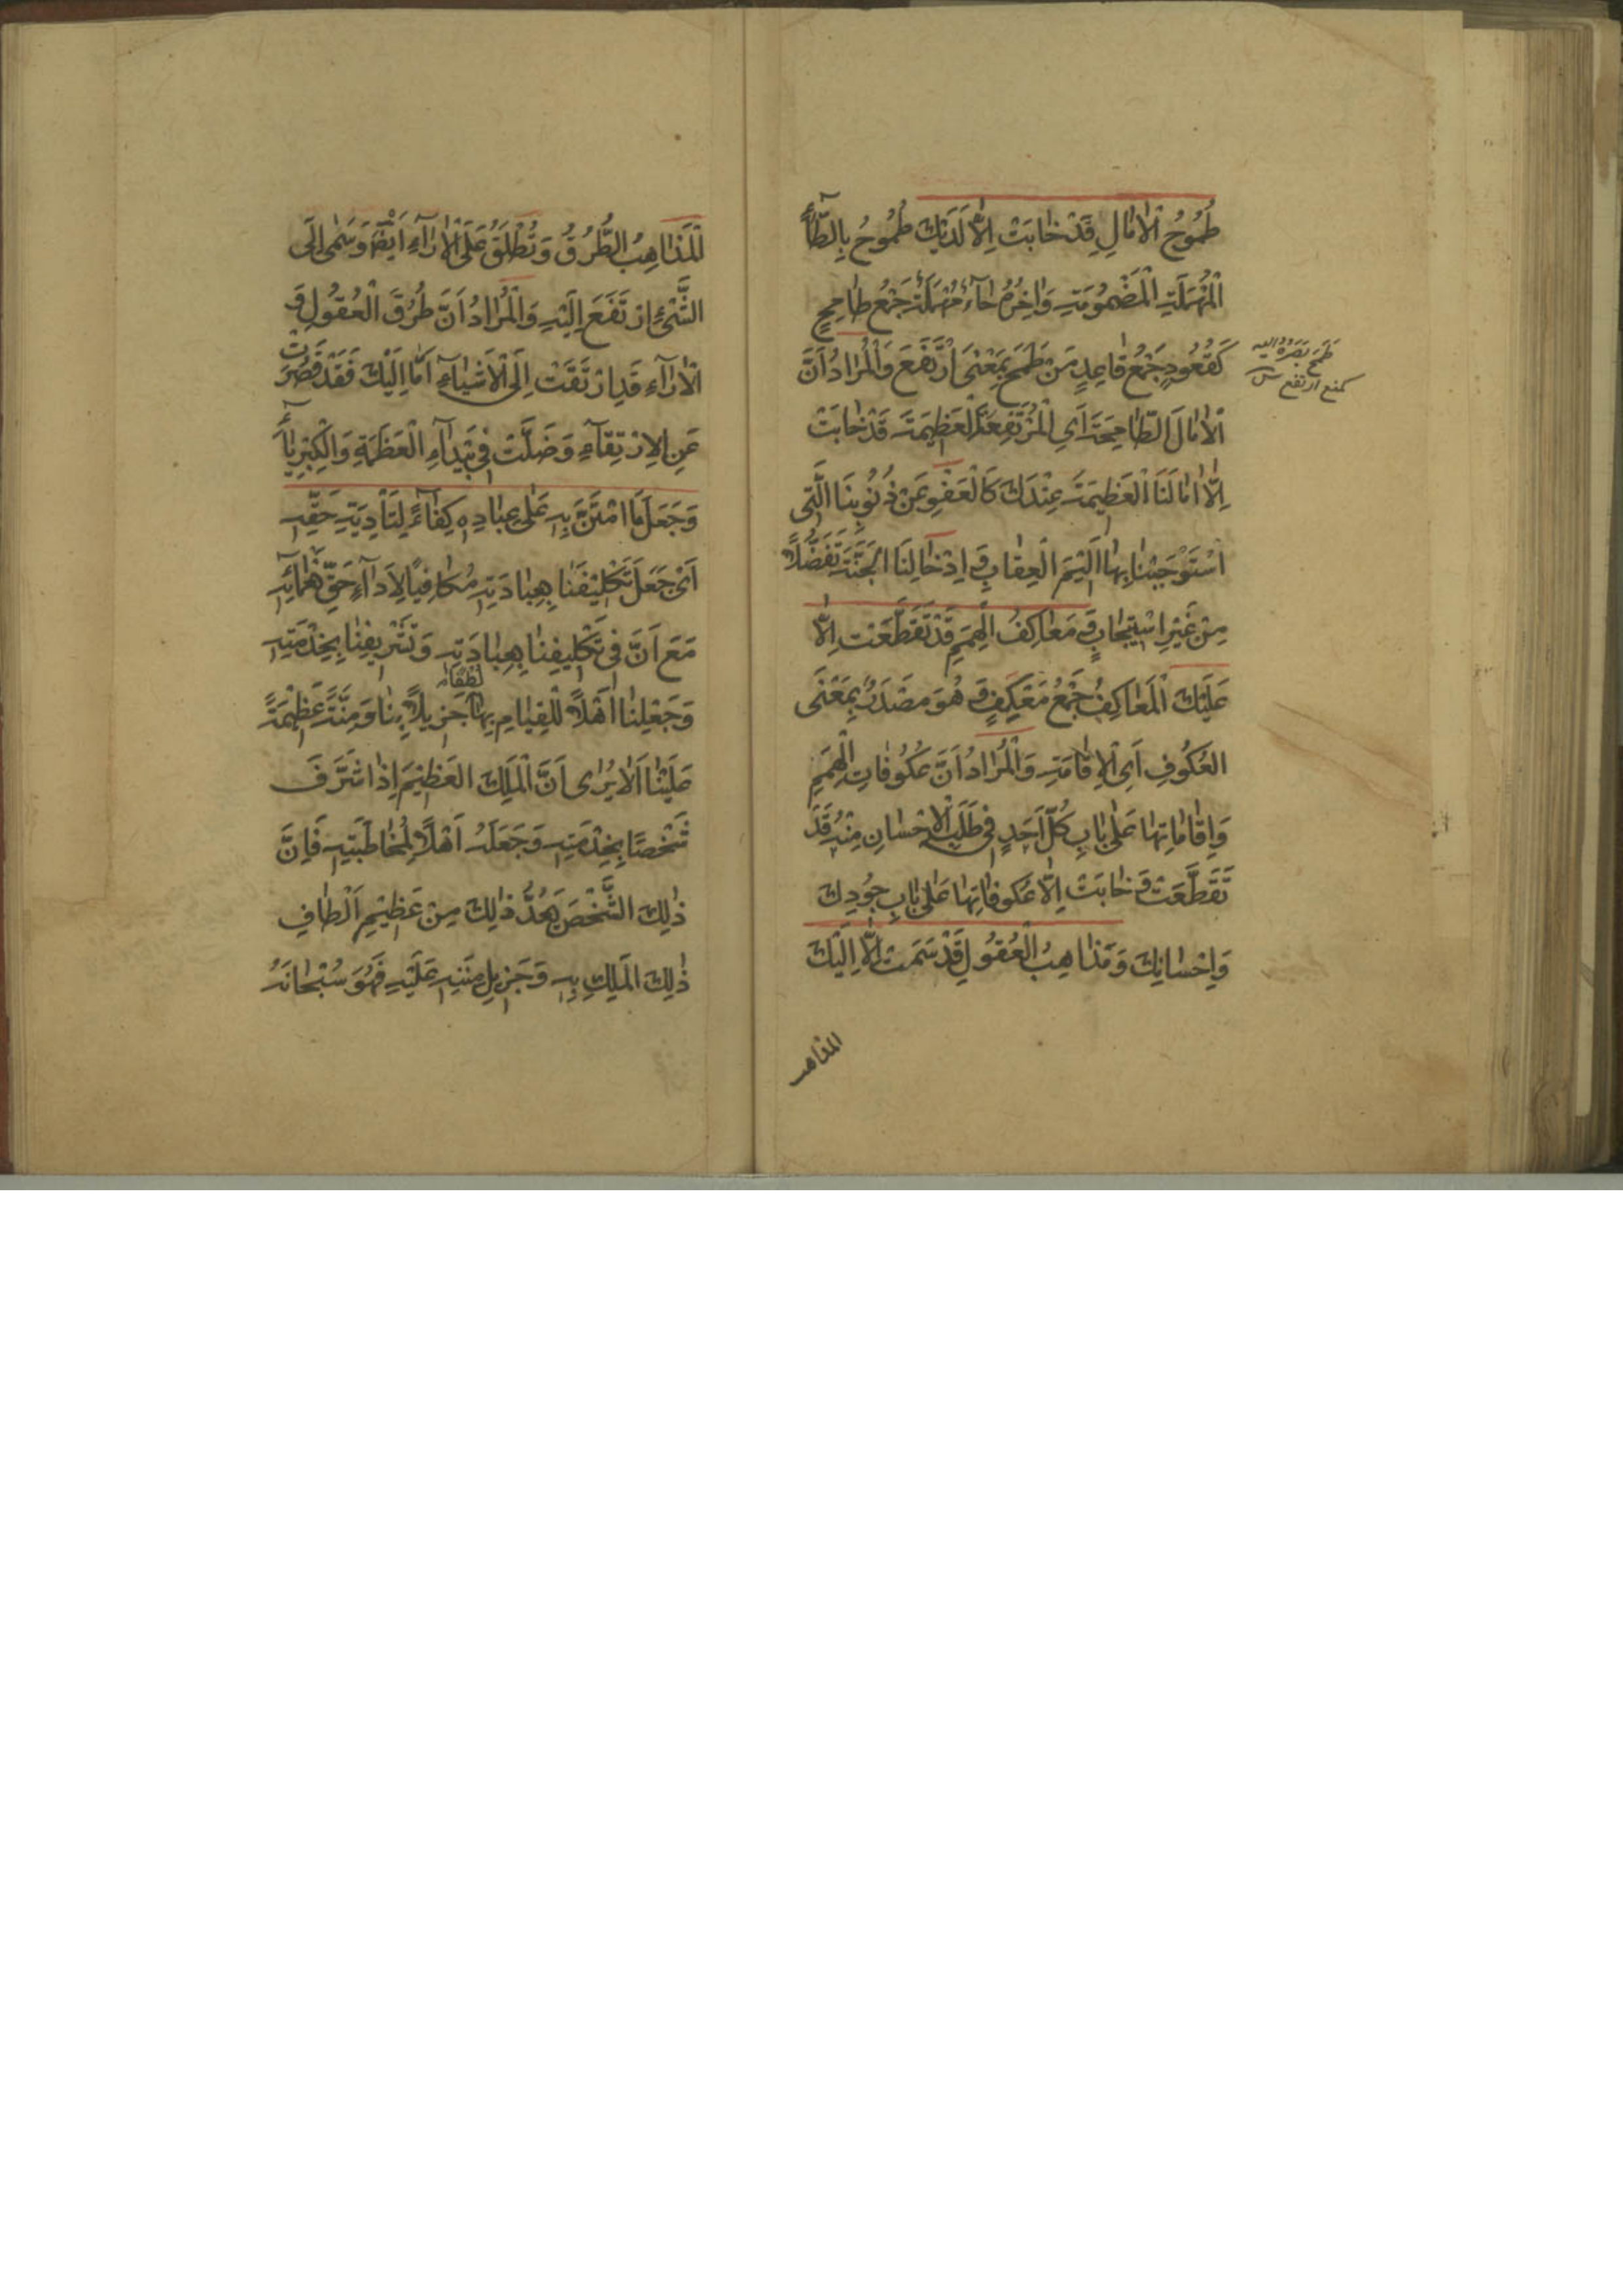 طُمُوحُ الْاٰمٰالِ قَدْ خٰابَتْ اِلّٰا لَدَيْكَ طُمُوحُ بِالطّٰآءِ
الْمُهْمَلَةِ الْمَضْمُومَةِ وَاٰخِرُهُ حٰآءٌ مُهْمَلَةٌ جَمْعُ طٰامِحٍ
كَقُعُودٍ جَمْعُ قٰاعِدٍ مِنْ طَمَحَ بِمَعْنَى ارْتَفَعَ وَالْمُرٰادُ اَنَّ
طَمَحَ بَصَرُهُ اِلَيْهِ
كمنع ارتفع
الْاٰمٰالَ الطّٰامِحَةَ اَىِ الْمُرْتَفِعَةَ الْعَظِيمَةَ قَدْ خٰابَتْ
اِلّٰا اٰمٰالَنَا الْعَظِيمَةَ عِنْدَكَ كَالْعَفْوِ عَنْ ذُنُوبِنَا الَّتِى
اسْتَوْجَبْنٰا بِهٰا اَلِيْمَ الْعِقٰابِ وَ اِدْخٰالِنَا الْجَنَّةَ تَفَضُّلًا
مِنْ غَيْرِ اسْتِيْجٰابٍ وَ مَعٰاكِفُ الْهِمَمِ قَدْ تَقَطَّعَتْ اِلّٰا
عَلَيْكَ الْمَعٰاكِفُ جَمْعُ مَعْكِفٍ وَ هُوَ مَصْدَرٌ بِمَعْنَى
الْعُكُوفِ اَىِ الْاِقٰامَةِ وَالْمُرٰادُ اَنَّ عُكُوفٰاتِ الْهِمَمِ
وَاِقٰامٰاتِهٰا عَلىٰ بٰابِ كُلِّ اَحَدٍ فِى طَلَبِ الْاِحْسٰانِ مِنْهُ قَدْ
تَقَطَّعَتْ وَ خٰابَتْ اِلّٰا عُكُوفٰاتِهٰا عَلىٰ بٰابِ جُودِكَ
وَاِحْسٰانِكَ وَ مَذٰاهِبُ الْعُقُولِ قَدْ سَمَتْ اِلّٰا اِلَيْكَ
المذاهب
الْمَذٰاهِبُ الطُّرُقُ وَ تُطْلَقُ عَلَى الْاٰرٰآءِ اَيْضًا وَ سَمٰى اِلَى
الشَّىْءِ ارْتَفَعَ اِلَيْهِ وَالْمُرٰادُ اَنَّ طُرُقَ الْعُقُولِ وَ
الْاٰرٰآءِ قَدِ ارْتَقَتْ اِلَى الْاَشْيٰآءِ اَمّٰا اِلَيْكَ فَقَدْ قَصُرَتْ
عَنِ الْاِرْتِقٰآءِ وَ ضَلَّتْ فِى بَيْدٰآءِ الْعَظَمَةِ وَالْكِبْرِيٰآءِ
وَجَعَلَ مَا امْتَنَّ بِهِ عَلىٰ عِبٰادِهِ كِفٰآءً لِتَأْدِيَةِ حَقِّهِ
اَىْ جَعَلَ تَكْلِيْفَنٰا بِعِبٰادَتِهِ مُكٰافِيًا لِاَدٰآءِ حَقِّ نَعْمٰآئِهِ
مَعَ اَنَّ فِى تَكْلِيفِنٰا بِعِبٰادَتِهِ وَ تَشْرِيفِنٰا بِخِدْمَتِهِ
وَجَعْلِنٰا اَهْلًا لِلْقِيٰامِ بِهٰا لُطْفًا جَزِيلًا بِنٰا وَ مِنَّةً عَظِيْمَةً
عَلَيْنٰا اَلٰا يُرٰى اَنَّ الْمَلِكَ الْعَظِيْمَ اِذٰا شَرَّفَ
شَخْصًا بِخِدْمَتِهِ وَجَعَلَهُ اَهْلًا لِمُخٰاطَبَتِهِ فَاِنَّ
ذٰلِكَ الشَّخْصَ يَعُدُّ ذٰلِكَ مِنْ عَظِيْمِ اَلْطٰافِ
ذٰلِكَ الْمَلِكِ بِهِ وَ جَزِيلِ مِنَنِهِ عَلَيْهِ فَهُوَ سُبْحٰانَهُ